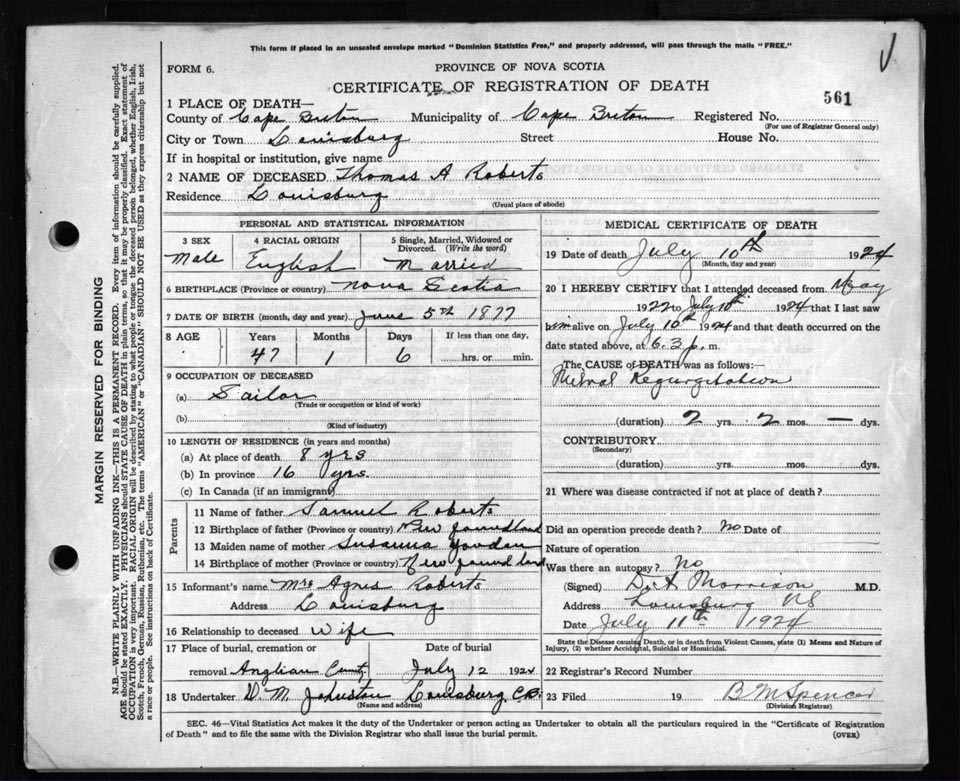 This form if placed in an unsealed envelope marked "Dominion Statistics Free," and properly addressed, will pass through the mails "FREE."
FORM 6.
PROVINCE OF NOVA SCOTIA
CERTIFICATE OF REGISTRATION OF DEATH
561
1 PLACE OF DEATH—
County of Cape Breton Municipality of Cape Breton Registered No.
(For use of Registrar General only)
City or Town Louisburg Street House No.
If in hospital or institution, give name
2 NAME OF DECEASED Thomas A Roberts
Residence Louisburg
(Usual place of abode)
PERSONAL AND STATISTICAL INFORMATION
3 SEX Male
4 RACIAL ORIGIN English
5 Single, Married, Widowed or Divorced. (Write the word) Married
6 BIRTHPLACE (Province or country) Nova Scotia
7 DATE OF BIRTH (month, day and year) June 5th 1877
8 AGE Years Months Days If less than one day,
47 1 6 hrs. or min.
9 OCCUPATION OF DECEASED
(a) Tailor
(Trade or occupation or kind of work)
(b)
(Kind of industry)
10 LENGTH OF RESIDENCE (in years and months)
(a) At place of death 8 yrs
(b) In province 16 yrs.
(c) In Canada (if an immigrant)
Parents
11 Name of father Samuel Roberts
12 Birthplace of father (Province or country) New foundland
13 Maiden name of mother Susanna
14 Birthplace of mother (Province or country) New found land
15 Informant's name Mrs Agnes Roberts
Address Louisburg
16 Relationship to deceased Wife
17 Place of burial, cremation or Date of burial
removal Anglian July 12 1924
18 Undertaker D. M. Johnston Louisburg C.B.
(Name and address)
MEDICAL CERTIFICATE OF DEATH
19 Date of death July 10th 1924
(Month, day and year)
20 I HEREBY CERTIFY that I attended deceased from May
1922 to July 10th 1924 that I last saw
him alive on July 10th 1924 and that death occurred on
date stated above, at 6.3 p. m.
The CAUSE OF DEATH was as follows:
Mitral Regurgitation
(duration) 2 yrs. 2 mos. — dys.
CONTRIBUTORY
(Secondary)
(duration) yrs. mos. dys.
21 Where was disease contracted if not at place of death?
Did an operation precede death? No Date of
Nature of operation
Was there an autopsy? No
(Signed) D. A. Morrison M.D.
Address Louisburg NS
Date July 11th 1924
State the Disease causing Death, or in death from Violent Causes, state (1) Means and Nature of
Injury, (2) whether Accidental, Suicidal or Homicidal.
22 Registrar's Record Number
23 Filed 19 B M Spencer
(Division Registrar)
SEC. 46—Vital Statistics Act makes it the duty of the Undertaker or person acting as Undertaker to obtain all the particulars required in the "Certificate of Registration
of Death" and to file the same with the Division Registrar who shall issue the burial permit.
(OVER)
MARGIN RESERVED FOR BINDING
N.B.—WRITE PLAINLY WITH UNFADING INK—THIS IS A PERMANENT RECORD. Every items of information should be carefully supplied.
AGE should be stated EXACTLY. PHYSICIANS should STATE CAUSE OF DEATH in plain terms, so that it may be properly classified. Exact statement of
OCCUPATION is very important. RACIAL ORIGIN will be described by stating to what people or tongue the deceased person belonged, whether English, Irish,
Scotch, French, German, Russian, Ruthenian, etc. The terms "AMERICAN" or "CANADIAN" SHOULD NOT BE USED as they express citizenship but not
a race or people. See instructions on back of Certificate.